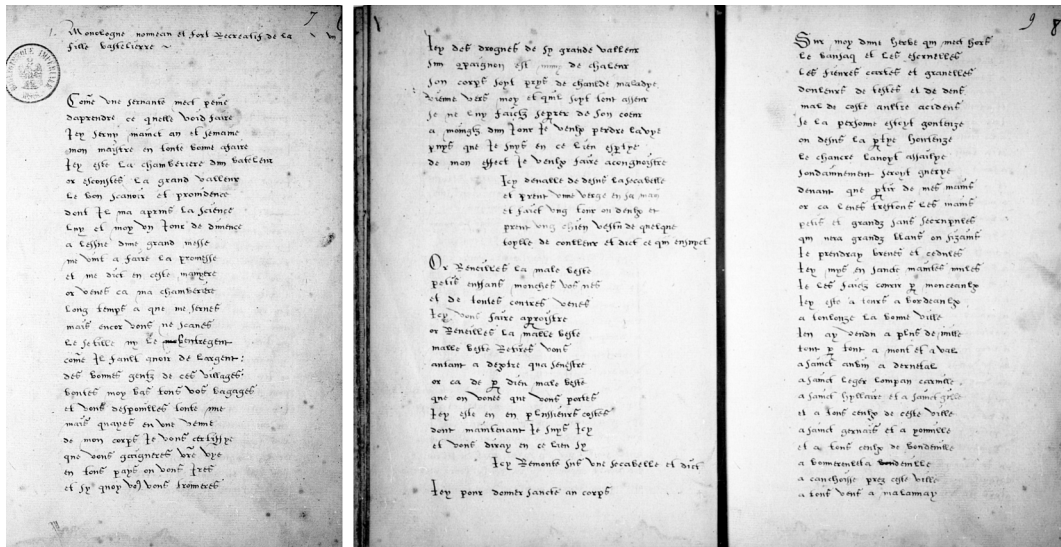 7
1. Monologue nouveau et fort Recreatif de la
fille bastelierre
Come une servante mect peine
daprendre ce quelle void faire
Jey servy mainct an et semaine
mon maystre en toute bonne afaire
Jey esté la chamberiere dun bateleur
or escoustes la grand valleur
le bon scavoir et providence
dont Il ma aprins la science
luy et moy un Jour de dimence
a lessue dune grand messe
me vint a faire la promesse
et me dict en ceste manyere
or venes ca ma chamberiere
long temps a que me serves
mais encor vous ne scaves
le stille ny le entregent
come Il fault avoir de largent
des bonnes gentz de ces villages
boutes moy bas tous vos bagages
et vous despouilles toute nue
mais quayes en une venue
de mon corps Je vous certiffye
que vous gaigneres vre vye
en tous pays ou vous Ires
et sy quoy vous trouveres
Jey des drogues de sy grande valleur
sun conpaignon est de chaleur
son corps soyt pryns de chaulde maladye
vienne vers moy et quil soyt tout asseur
je ne luy faictz separer de son coeur
a moingtz dun Jour Je veulx perdre la vye
puys que Je suys en ce lieu
de mon effect Je veulx faire acongnoistre
Icy devalle de desus la scabelle
et prent une verge en sa main
et faict ung tour ou deulx et
prent ung chien vestu de quelque
toylle de coulleur et dict ce qui ensuyct
Or Reveilles la male beste
petis enffans mouches vos nes
et de toutes contres venes
Jey vous faire aparoistre
or Reveilles la malle beste
malle beste Retires vous
autant a dextre qua senestre
or ca de par dieu male beste
que on voue que vous portes
Jey esté en en plussieurs costes
dont maintenant Je suys Icy
et vous diray en ce lieu sy
Icy Remonte sus une scabelle et dict
Jey pour donner sancté au corps
9 8
Sur moy dune herbe qui mect hors
le et les escruelles
les fievres cartes et gravelles
douleurs de testes et de dens
mal de coste aultre acidens
se la personne estoyt gouteuze
ou desus la partye honteuze
le chancre lavoyt assailye
soudainement seroyt guerye
devant que partir de mes mains
or ca leves trestous les mains
petis et grandz sans scrupules
qui vera grandz blans ou sizains
Je prendray brevés et cedulles
Jey mys en sancté maintes mules
Je les faictz courir par monceaulx
Jey esté a tours a bordeaulx
a toulouze la bonne ville
Jen ay vendu a plus de mille
tout par tout a mont et a val
a sainct aubin a dernetal
a sainct leger longpan carville
a sainct hyllaire et a sainct gille
et a tous ceulx de ceste ville
a sainct gervais et a
et a tous ceulx de bondeville
a bonnereulla bondeville
a canchoisse prez ceste ville
a tous vent a malaunay